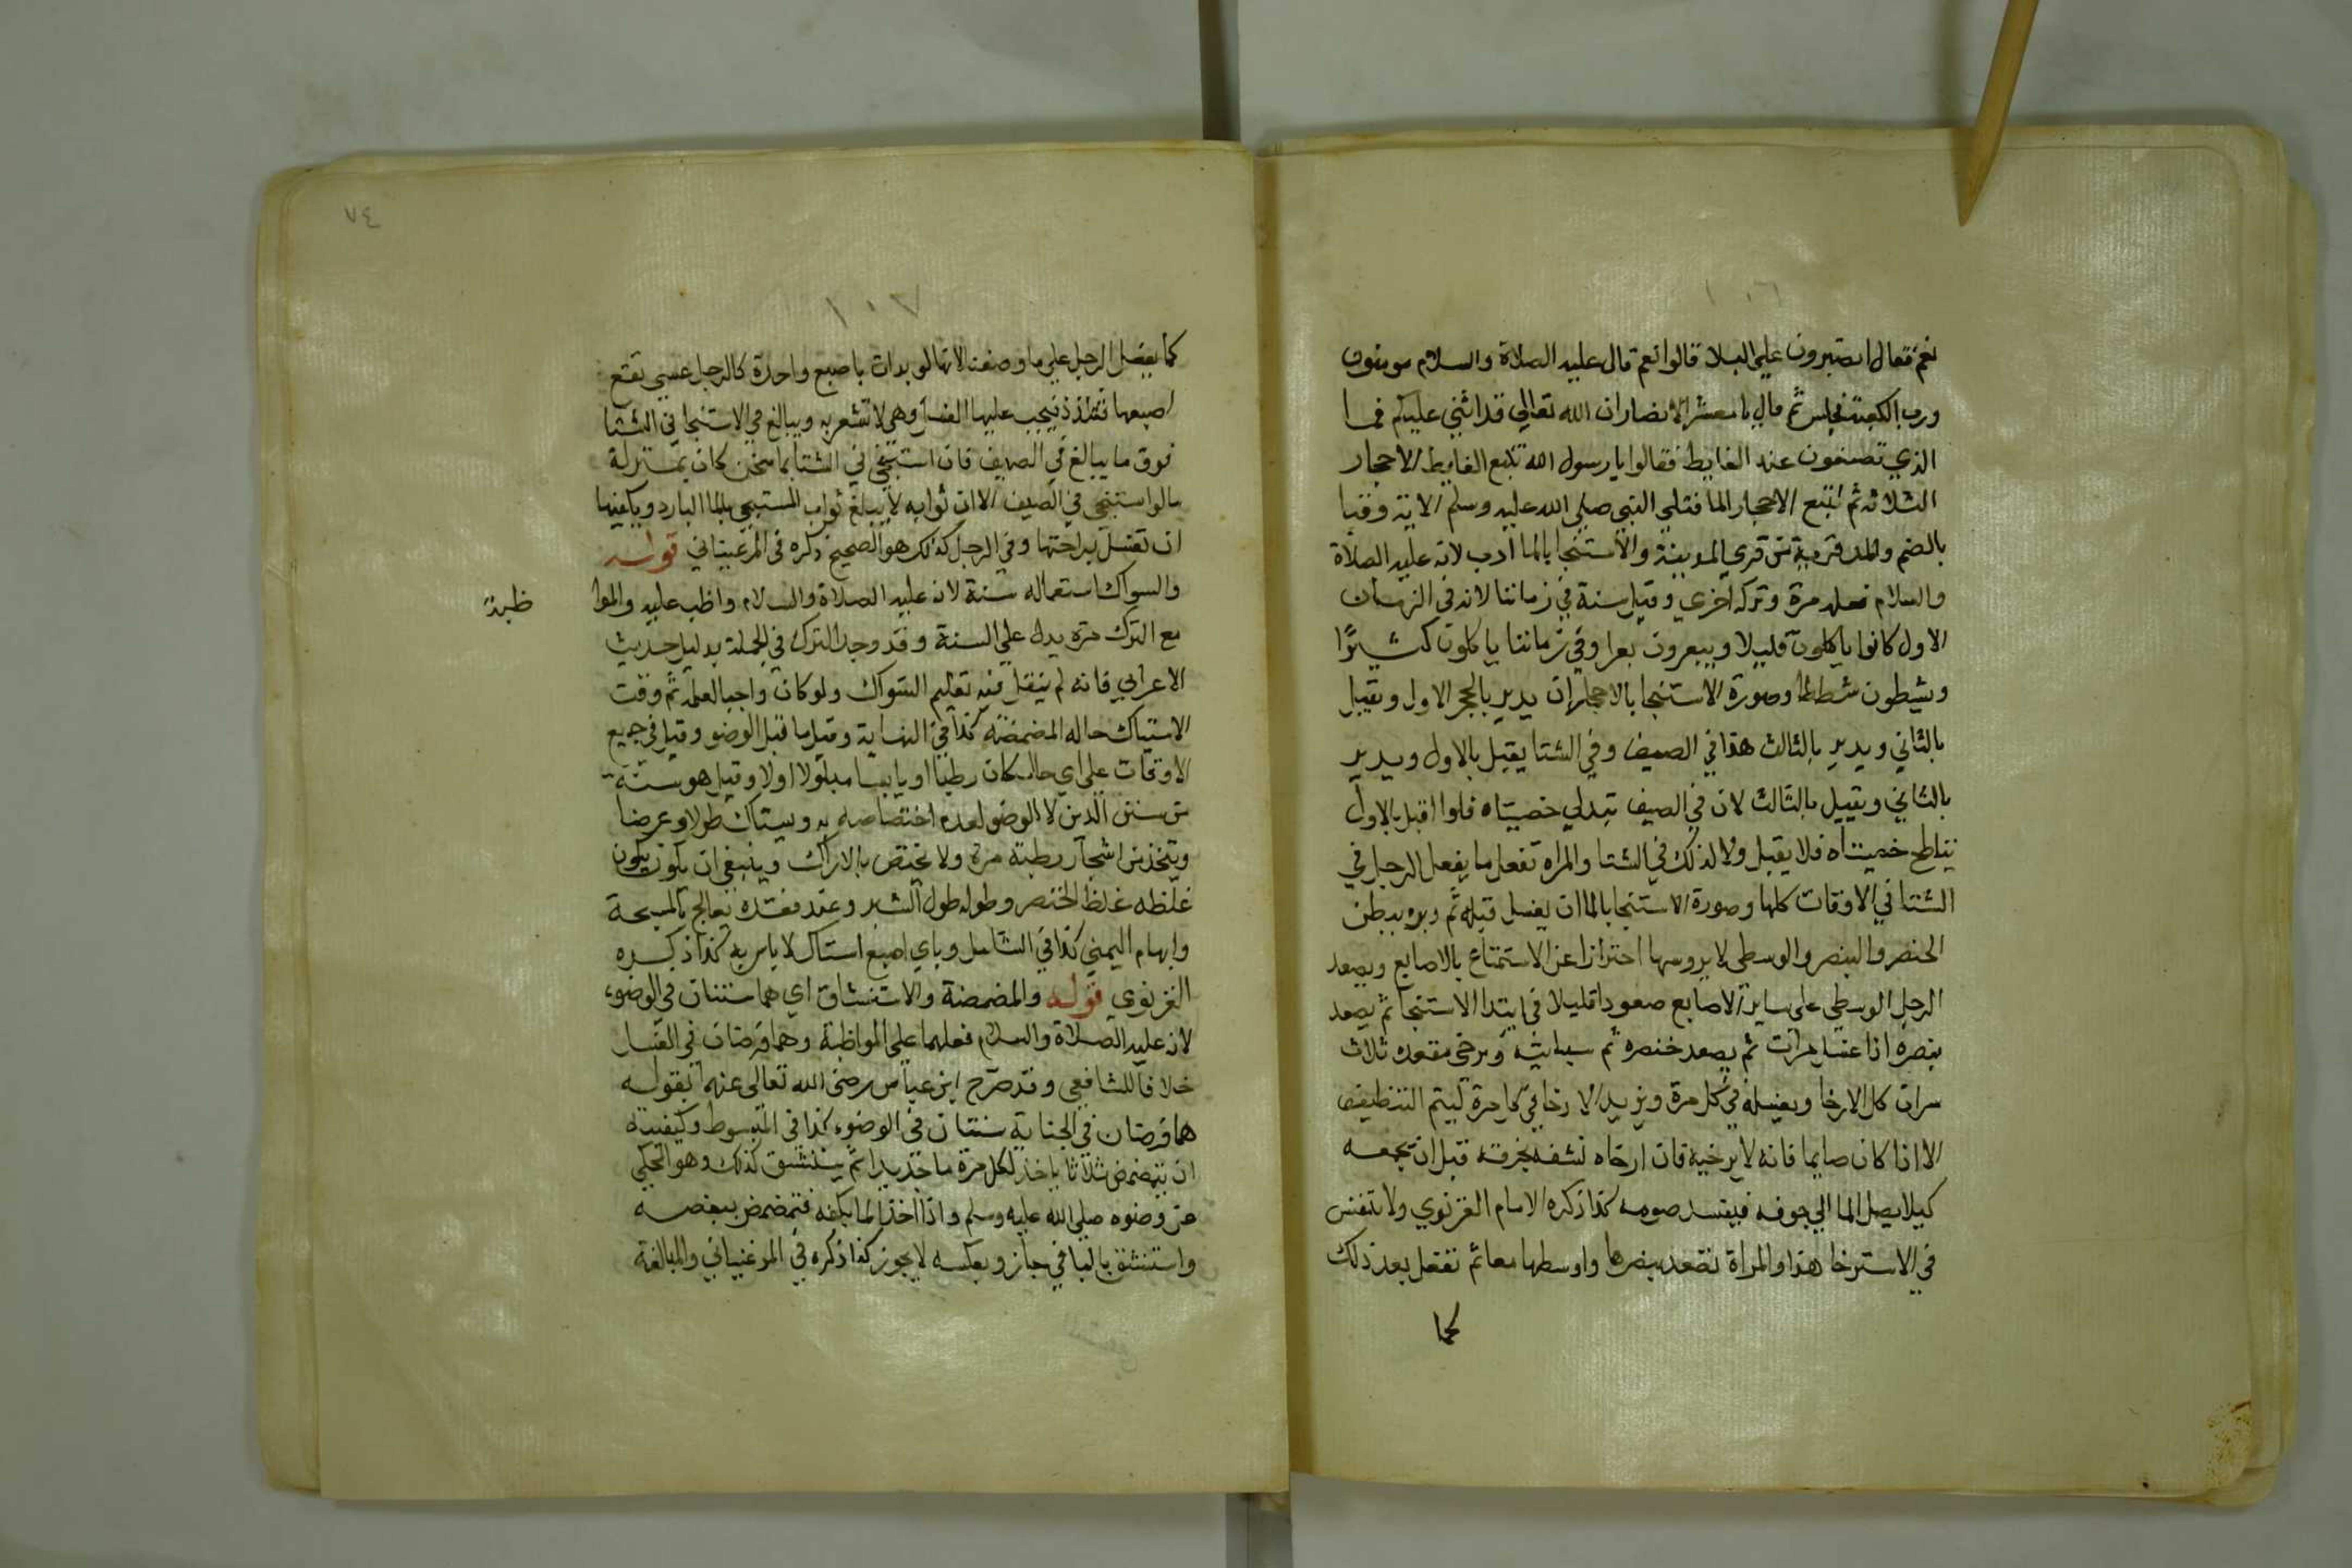 ١٠٦
نعم فقال اتصبرون علي البلا قالوا نعم قال عليه الصلاة والسلام مومنون
ورب الكعبة فجلس ثم قال يا معشر الانصار ان الله تعالي قد اثني عليكم فما
الذي تصنعون عند الغايط فقالوا يا رسول الله نتبع الغايط الاحجار
الثلاثه ثم نتبع الاحجار الما فتلي النبي صلي الله عليه وسلم الاية وقبا
بالضم والمد قرية من قري المدينة والاستنجا بالما ادب لانه عليه الصلاة
والسلام فعله مرة وتركه اخري وقيل سنة في زماننا لانه في الزمان
الاول كانوا ياكلون قليلا ويبعرون بعرا وفي زماننا ياكلون كثيرًا
ويثلطون ثلطا وصورة الاستنجا بالاحجار ان يدبر بالحجر الاول ويقبل
بالثاني ويدبر بالثالث هذا في الصيف وفي الشتا يقبل بالاول ويدبر
بالثاني ويقبل بالثالث لان في الصيف تتدلي خصيتاه فلو اقبل بالاول
تتلطخ خصيتاه فلا يقبل ولا كذلك في الشتا والمراه تفعل ما يفعل الرجل في
الشتا في الاوقات كلها وصورة الاستنجا بالما ان يغسل قبله ثم دبره ببطن
الخنصر والبنصر والوسطي لا بروسها احترازا عن الاستمتاع بالاصابع ويصعد
الرجل الوسطي علي ساير الاصابع صعودا قليلا في ابتدا الاستنجا ثم يصعد
بنصره اذا غسل مرات ثم يصعد خنصره ثم سبابته ويرخي مقعده ثلاث
مرات كل الارخا ويغسله في كل مرة ويزيد الارخا في كل مرة ليتم التنظيف
الا اذا كان صايما فانه لا يرخيه فان ارخاه نشفه بخرقة قبل ان يجمعه
كيلا يصل الما الي جوفه فيفسد صومه كذا ذكره الامام الغزنوي ولا يتنفس
في الاسترخا هذا والمراة تصعد بنصرها واوسطها معا ثم تفعل بعد ذلك
كما
٧٤
١٠٧
كما يفعل الرجل علي ما وصفنا لانها لو بدات باصبع واحدة كالرجل عسي يقع
اصبعها فتتلذذ فيجب عليها الغسل وهي لا تشعر به ويبالغ في الاستنجا في الشتا
فوق ما يبالغ في الصيف فان استنجي في الشتا بما سخن كان بمنزلة
ما لو استنجي في الصيف الا ان ثوابه لا يبلغ ثواب المستنجي بالما البارد ويكفيها
ان تغسل براحتها وفي الرجل كذلك هو الصحيح ذكره في المرغيناني قوله
والسواك استعماله سنة لانه عليه الصلاة والسلام واظب عليه والموا
ظبة
مع الترك مرة يدل علي السنة وقد وجد الترك في الجملة بدليل حديث
الاعرابي فانه لم ينقل فيه تعليم السواك ولو كان واجبا لعلمه ثم وقت
الاستياك حاله المضمضة كذا في النهاية وقيل ما قبل الوضو وقيل في جميع
الاوقات علي اي حال كان رطبا او يابسا مبلولا اولا وقيل هو سنة
من سنن الدين لا الوضو لعدم اختصاصه به ويستاك طولا وعرضا
ويتخذ من اشجار رطبة مرة ولا يختص بالاراك وينبغي ان يكون يكون
غلظه غلظ الخنصر وطوله طول الشبر وعند فقده يعالج بالمسبحة
وابهام اليمني كذا في الشامل وباي اصبع استاك لا باس به كذا ذكره
الغزنوي قوله والمضمضة والاستنشاق اي هما سنتان في الوضوء
لانه عليه الصلاة والسلام فعلهما علي المواظبة وهما فرضان في الغسل
خلافا للشافعي وقد صرح ابن عباس رضي الله تعالي عنهما بقوله
هما فرضان في الجنابة سنتان في الوضوء كذا في المبسوط وكيفيته
ان يتمضمض ثلاثا ياخذ لكل مرة ما جديدا ثم يستنشق كذلك وهو المحكي
عن وضوه صلي الله عليه وسلم واذا اخذ الما بكفه فتمضمض ببعضه
واستنشق بالباقي جاز وبعكسه لا يجوز كذا ذكره في المرغيناني والمبالغة